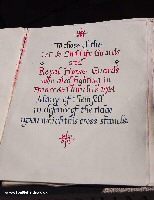 To those of the
1st & 2nd Life Guards
and
Royal Horse Guards
who died fighting in
France & Flanders 1914
Many of them fell
in defence of the ridge
upon which this cross stands